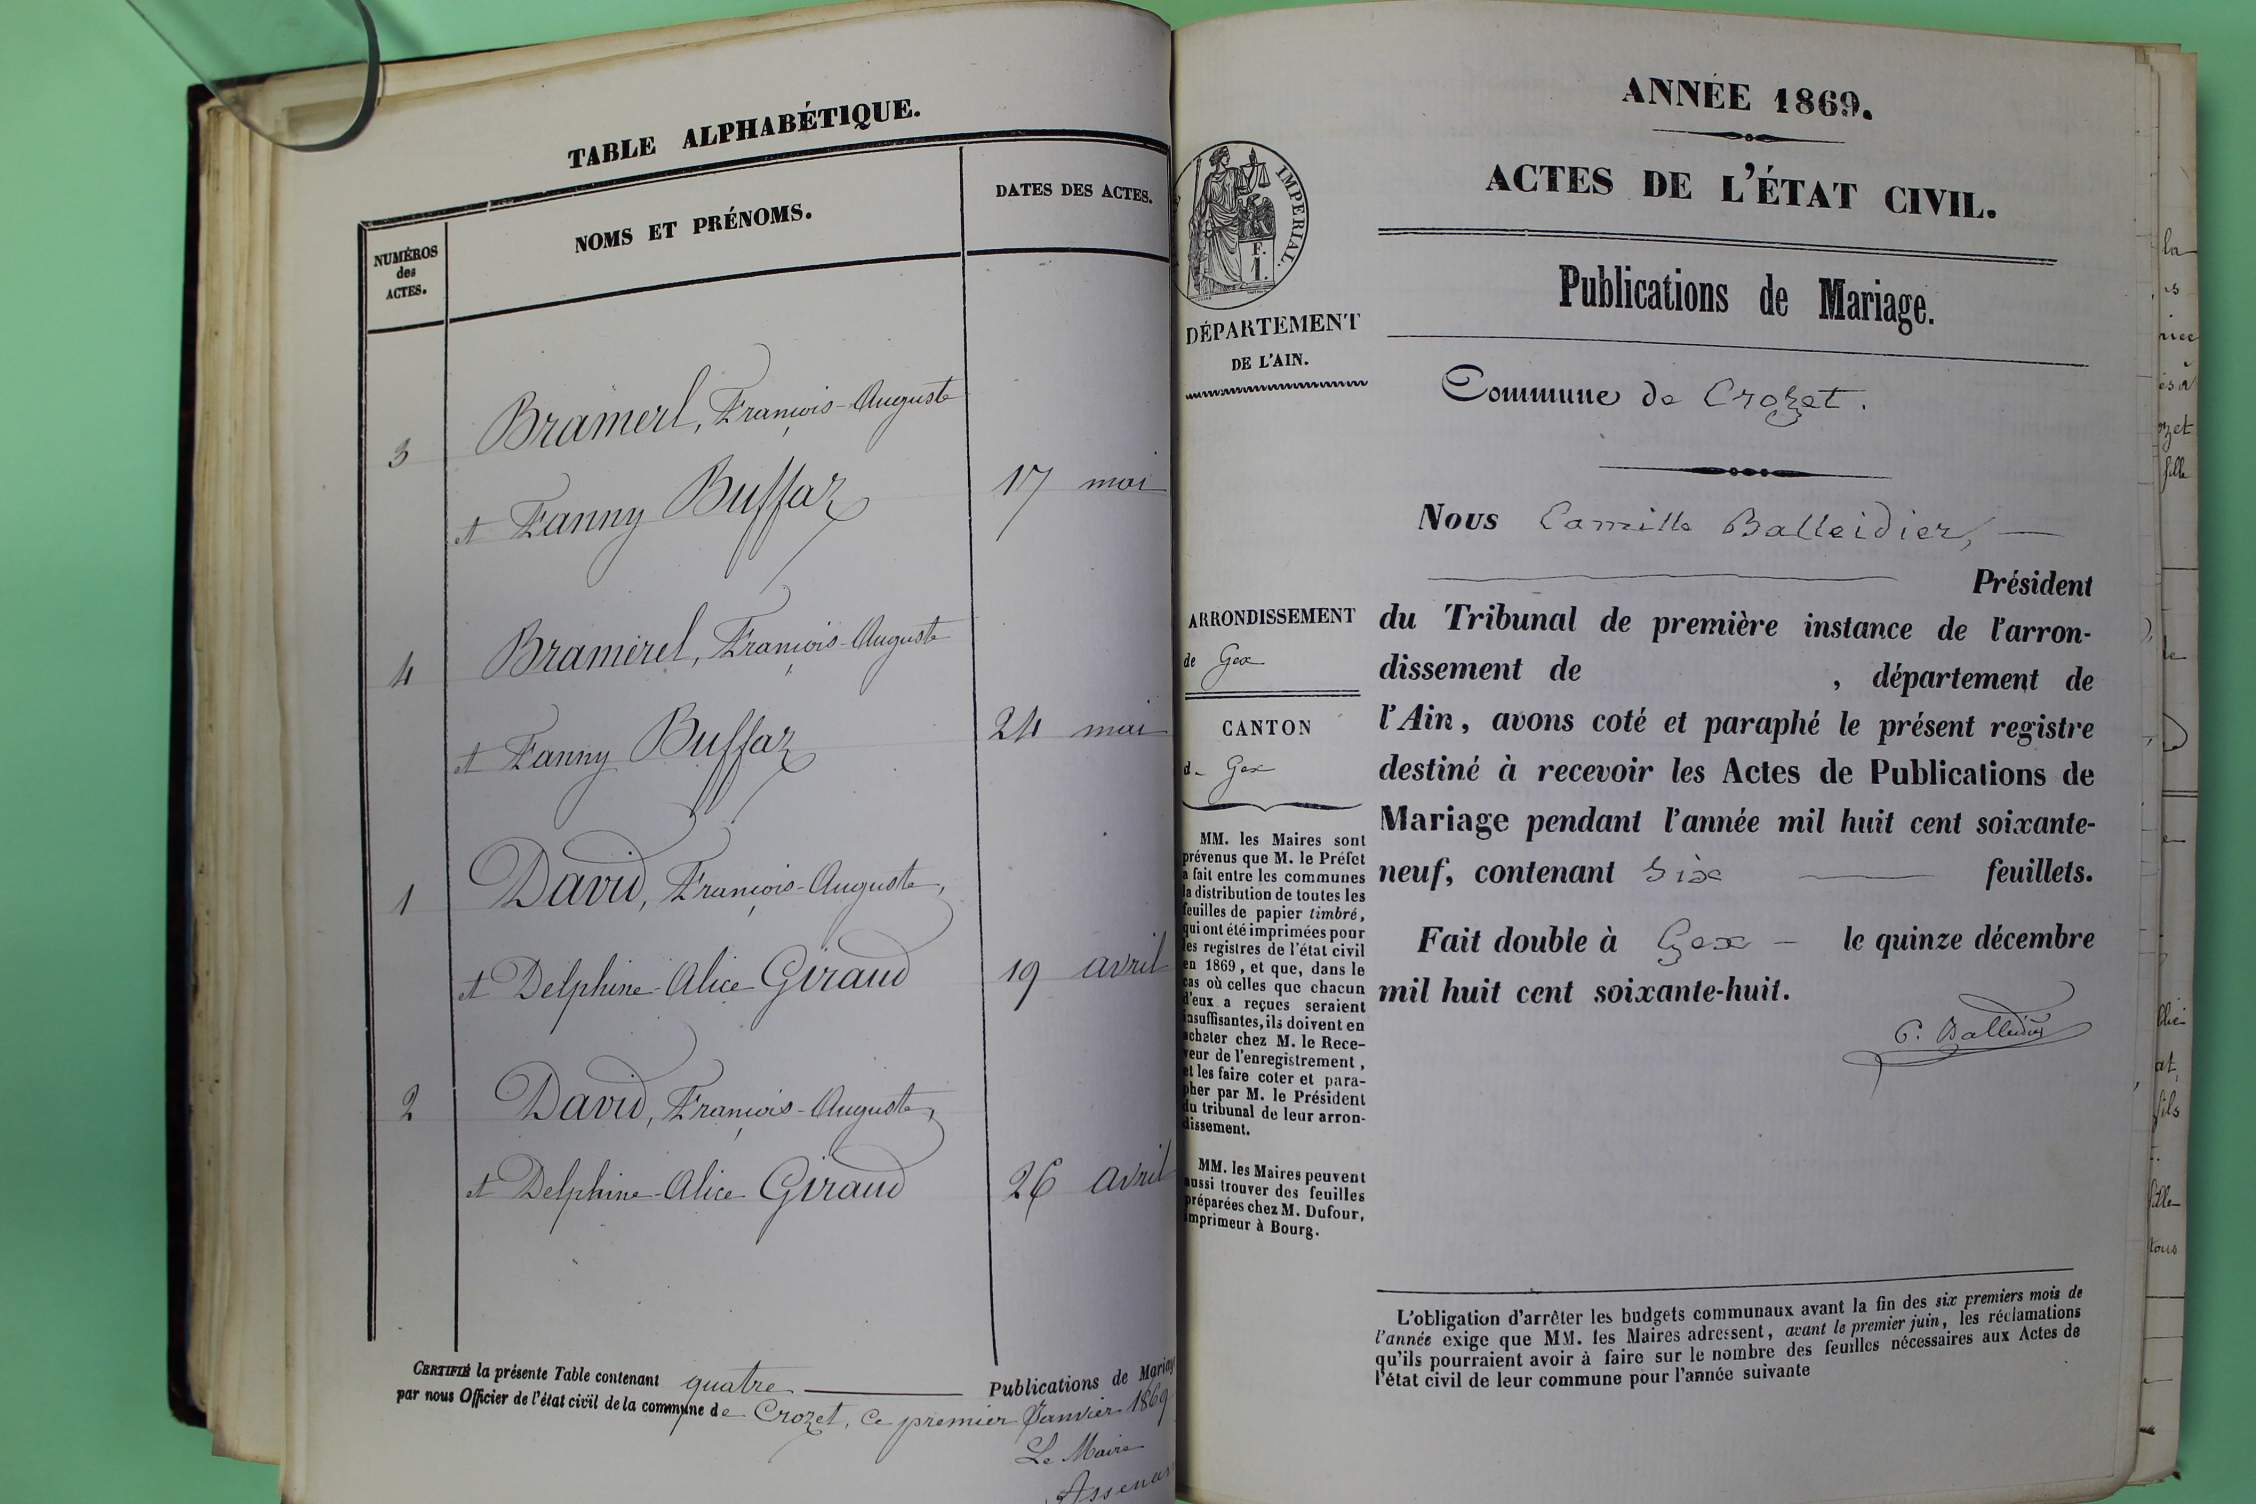 TABLE ALPHABÉTIQUE.
NUMÉROS
des
ACTES.
NOMS ET PRÉNOMS.
DATES DES ACTES.
Bramerl, François-Auguste
3
et Fanny Buffaz
17 mai
Bramerel, François-Auguste
4
et Fanny Buffaz
24 mai
David, François-Auguste,
1
et Delphine-Alice Giraud
19 avril
2
David, François-Auguste,
et Delphine-Alice Giraud
26 avril
CERTIFIÉ la présente Table contenant quatre Publications de Mariag
par nous Officier de l'état civil de la commune de Crozet, ce premier Janvier 1869
Le Maire
ANNÉE 1869.
ACTES DE L'ÉTAT CIVIL.
Publications de Mariage.
IMPERIAL.
F.
1.
DÉPARTEMENT
DE L'AIN.
Commune de Crozet.
Nous Camille Balleidier,
Président
du Tribunal de première instance de l'arron-
dissement de , département de
l'Ain, avons coté et paraphé le présent registre
destiné à recevoir les Actes de Publications de
Mariage pendant l'année mil huit cent soixante-
neuf, contenant six feuillets.
Fait double à Gex le quinze décembre
mil huit cent soixante-huit.
C. Balleidier
ARRONDISSEMENT
de Gex
CANTON
d- Gex
MM. les Maires sont
prévenus que M. le Préfet
a fait entre les communes
la distribution de toutes les
feuilles de papier timbré,
qui ont été imprimées pour
les registres de l'état civil
en 1869, et que, dans le
cas où celles que chacun
d'eux a reçues seraient
insuffisantes, ils doivent en
acheter chez M. le Rece-
veur de l'enregistrement,
et les faire coter et para-
pher par M. le Président
du tribunal de leur arron-
dissement.
MM. les Maires peuvent
aussi trouver des feuilles
préparées chez M. Dufour,
imprimeur à Bourg.
L'obligation d'arrêter les budgets communaux avant la fin des six premiers mois de
l'année exige que MM. les Maires adressent, avant le premier juin, les réclamations
qu'ils pourraient avoir à faire sur le nombre des feuilles nécessaires aux Actes de
l'état civil de leur commune pour l'année suivante